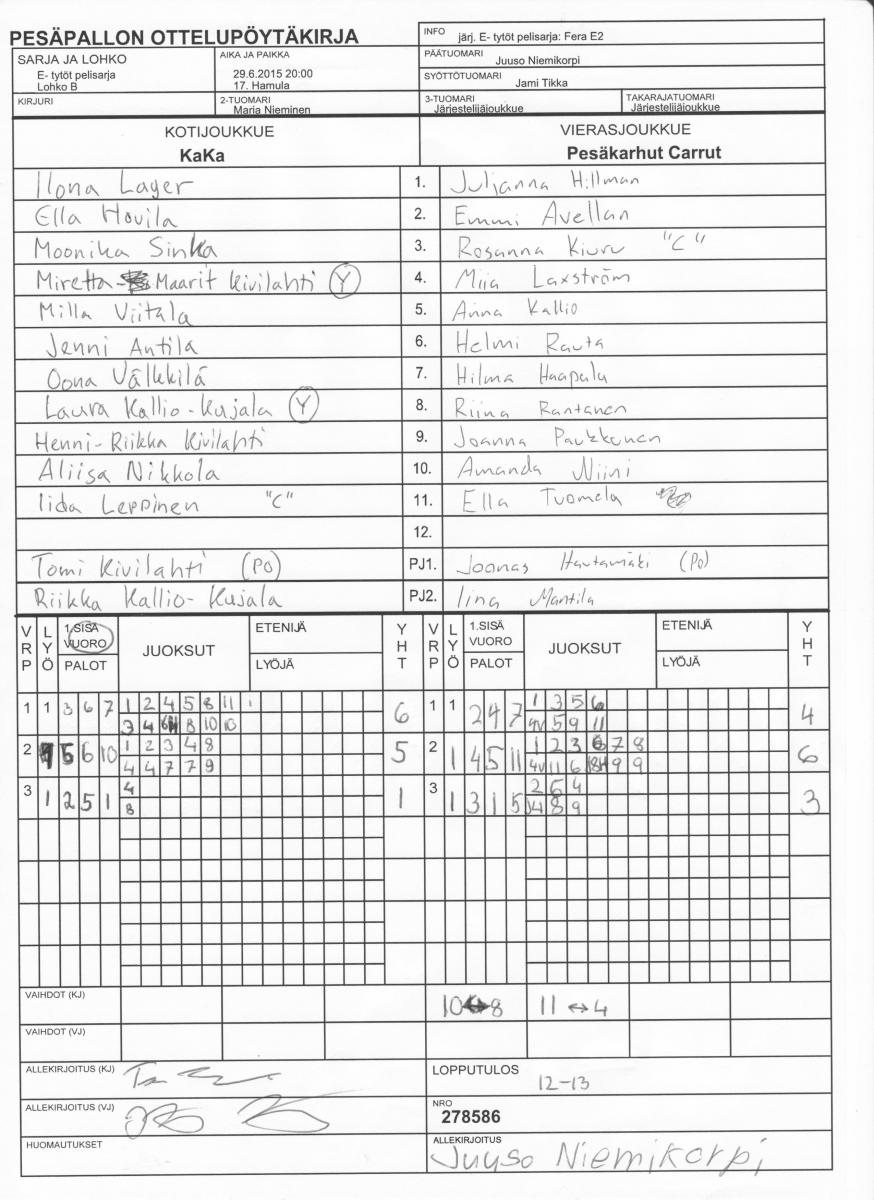 PESÄPALLON OTTELUPÖYTÄKIRJA
INFO järj. E- tytöt pelisarja: Fera E2
SARJA JA LOHKO
E- tytöt pelisarja
Lohko B
AIKA JA PAIKKA
29.6.2015 20:00
17. Hamula
PÄÄTUOMARI
Juuso Niemikorpi
SYÖTTÖTUOMARI
Jami Tikka
KIRJURI
2-TUOMARI
Maria Nieminen
3-TUOMARI
Järjestelijäjoukkue
TAKARAJATUOMARI
Järjestelijäjoukkue
KOTIJOUKKUE
KaKa
VIERASJOUKKUE
Pesäkarhut Carrut
Ilona Lager 1. Julianna Hillman
Ella Hovila 2. Emmi Avellan
Moonika Sinka 3. Rosanna Kiuru "C"
Miretta- Maarit Kivilahti Y 4. Miia Laxström
Milla Viitala 5. Anna Kallio
Jenni Antila 6. Helmi Rauta
Oona Välkkilä 7. Hilma Haapala
Laura Kallio-Kujala Y 8. Riina Rantanen
Henni-Riikka Kivilahti 9. Joanna Paukkunen
Aliisa Nikkola 10. Amanda Niini
Iida Leppinen "C" 11. Ella Tuomela
12.
Tomi Kivilahti (PO) PJ1. Joonas Hautamäki (PO)
Riikka Kallio-Kujala PJ2. Iina Mantila
VRP LYÖ 1.SISÄ VUORO PALOT JUOKSUT ETENIJÄ LYÖJÄ YHT VRP LYÖ 1.SISÄ VUORO PALOT JUOKSUT ETENIJÄ LYÖJÄ YHT
1 1 3 6 7 1 2 4 5 8 11 6 1 1 2 4 7 1 3 5 6 4
3 4 8 10 10 4V 5 9 11
2 5 6 10 1 2 3 4 8 5 2 1 4 5 11 1 2 3 6 7 8 6
4 4 7 7 9 4V 11 6 9 9
3 1 2 5 1 4 1 3 1 3 1 5 2 4 3
8 8 9
VAIHDOT (KJ) 10↔8 11↔4
VAIHDOT (VJ)
ALLEKIRJOITUS (KJ)
LOPPUTULOS
12-13
ALLEKIRJOITUS (VJ)
NRO
278586
HUOMAUTUKSET
ALLEKIRJOITUS
Juuso Niemikorpi